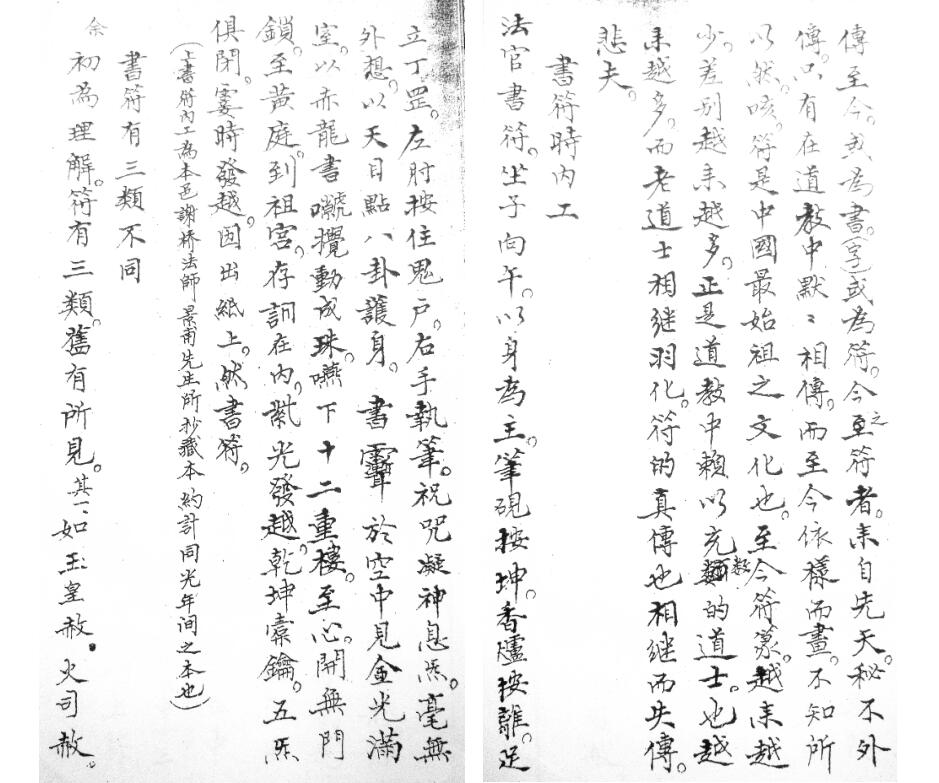 傳至今。我為書。(字)或為符。今之至符者。耒自先天。秘不外
傳。只有在道教中默〻相傳。而至今依樣而畫。不知所
以然。咳。符是中國最始祖之文化也。至今符篆。越耒越
少。差别越耒越多。正是道教中賴以充數的道士。也越
耒越多。而老道士相継羽化。符的真傳也相継而失傳。
悲夫。
書符時内工
法官書符。坐子向午。以身為主。筆硯按坤。香爐按離。足
立丁罡。左肘按住鬼户。右手執筆。祝咒凝神息炁。毫無
外想。以天目點八卦護身。書 於空中見金光滿
室。以赤龍書 攪動成珠。嚥下十二重樓。至心。開無門
鎖。至黄庭。到祖宫。存訶在内。紫光發越。乾坤橐鑰。五炁
俱閉。霎時發越。因出紙上。然書符。
(上書符内工為本邑謝橋法師景甫先生所抄藏本約計同光年间之本也)
書符有三類不同
余初為理解。符有三類。舊有所見。其一、如玉皇赦。火司赦。